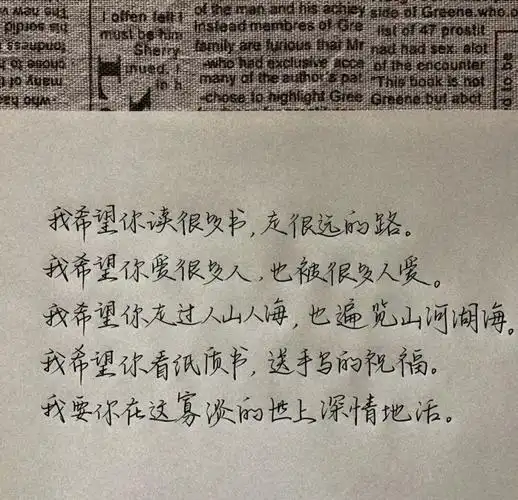 I often felt t
must be him
Sherry
inued. I
in h
of the man and his achiev
instead membres of Gre
family are furious thai Mr
-who had exclusive acce
many of the author's pat
-chose to highlight Gree
side of Greene.who.o
list of 47 prostit
nad had sex. alot
of the encounter
"This book is not
Greene.but abot
我希望你读很多书,走很远的路。
我希望你爱很多人,也被很多人爱。
我希望你走过人山人海,也遍览山河湖海。
我希望你看纸质书,送手写的祝福。
我要你在这寡淡的世上深情地活。